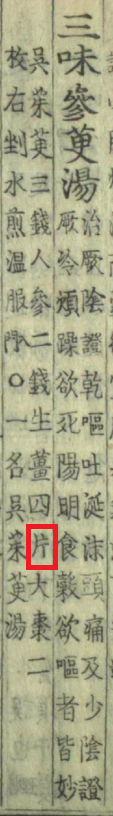 三味參萸湯
治厥陰證乾嘔吐涎沫頭痛及少陰證
厥冷煩躁欲死陽明食穀欲嘔者皆妙
吳茱萸三錢人參二錢生薑四片大棗二
枚右剉水煎溫服入門○一名吳茱萸湯